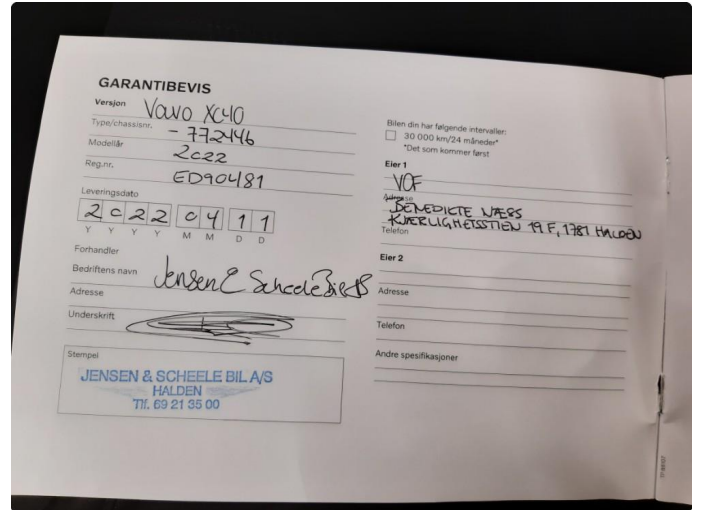 GARANTIBEVIS
Versjon Volvo XC40
Type/chassisnr. - 772446
Modellår 2022
Reg.nr. ED90481
Leveringsdato
2022 04 11
Y Y Y Y M M D D
Forhandler
Bedriftens navn Jensen & Scheele Bil AS
Adresse
Underskrift
Stempel
JENSEN & SCHEELE BIL A/S
HALDEN
Tlf. 69 21 35 00
Bilen din har følgende intervaller:
30 000 km/24 måneder*
*Det som kommer først
Eier 1
VCF
Adresse BENEDIKTE NÆSS
KJÆRLIGHETSSTIEN 19 F, 1781 HALDEN
Telefon
Eier 2
Adresse
Telefon
Andre spesifikasjoner